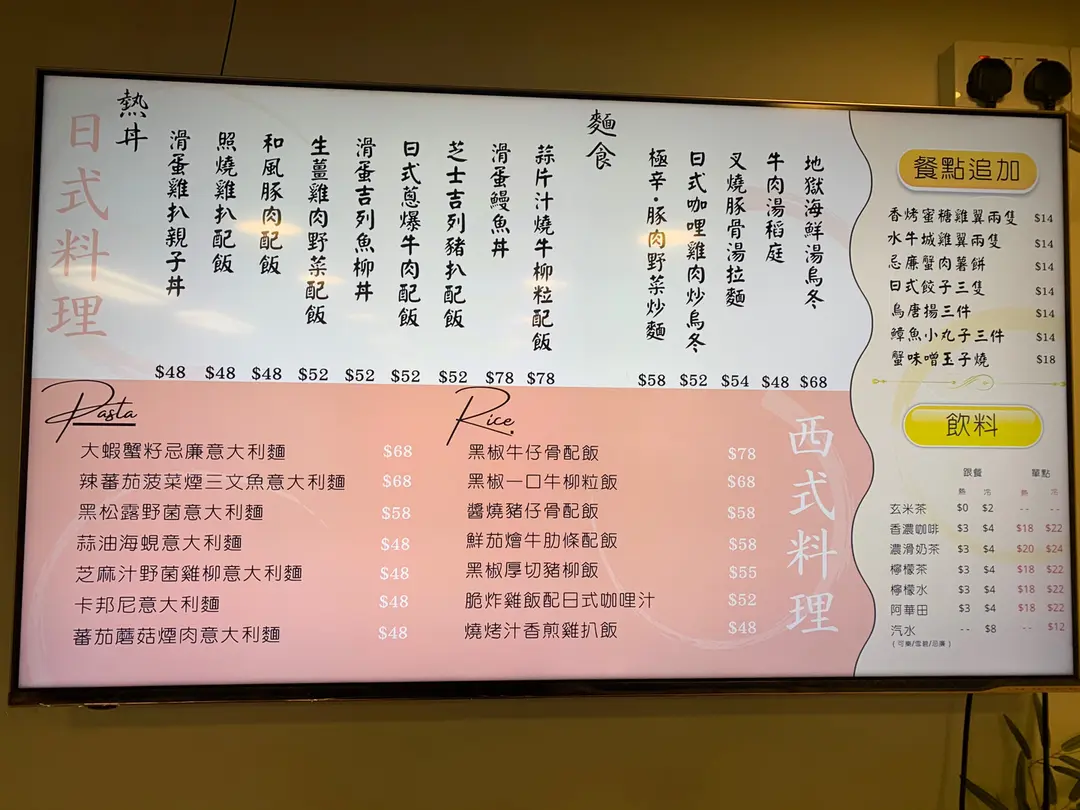 日式料理
熱丼
滑蛋雞扒親子丼 $48
照燒雞扒配飯 $48
和風豚肉配飯 $48
生薑雞肉野菜配飯 $52
滑蛋吉列魚柳丼 $52
日式蔥爆牛肉配飯 $52
芝士吉列豬扒配飯 $52
滑蛋鰻魚丼 $78
蒜片汁燒牛柳粒配飯 $78
麵食
極辛·豚肉野菜炒麵 $58
日式咖哩雞肉炒烏冬 $52
叉燒豚骨湯拉麵 $54
牛肉湯稻庭 $48
地獄海鮮湯烏冬 $68
Pasta
大蝦蟹籽忌廉意大利麵 $68
辣蕃茄菠菜煙三文魚意大利麵 $68
黑松露野菌意大利麵 $58
蒜油海蜆意大利麵 $48
芝麻汁野菌雞柳意大利麵 $48
卡邦尼意大利麵 $48
蕃茄蘑菇煙肉意大利麵 $48
Rice
黑椒牛仔骨配飯 $78
黑椒一口牛柳粒飯 $68
醬燒豬仔骨配飯 $58
鮮茄燴牛肋條配飯 $58
黑椒厚切豬柳飯 $55
脆炸雞飯配日式咖哩汁 $52
燒烤汁香煎雞扒飯 $48
西式料理
餐點追加
香烤蜜糖雞翼兩隻 $14
水牛城雞翼兩隻 $14
忌廉蟹肉薯餅 $14
日式餃子三隻 $14
鳥唐揚三件 $14
鱆魚小丸子三件 $14
蟹味噌玉子燒 $18
飲料
跟餐 單點
熱 冷 熱 冷
玄米茶 $0 $2 -- --
香濃咖啡 $3 $4 $18 $22
濃滑奶茶 $3 $4 $20 $24
檸檬茶 $3 $4 $18 $22
檸檬水 $3 $4 $18 $22
阿華田 $3 $4 $18 $22
汽水 -- $8 -- $12
(可樂/雪碧/忌廉)